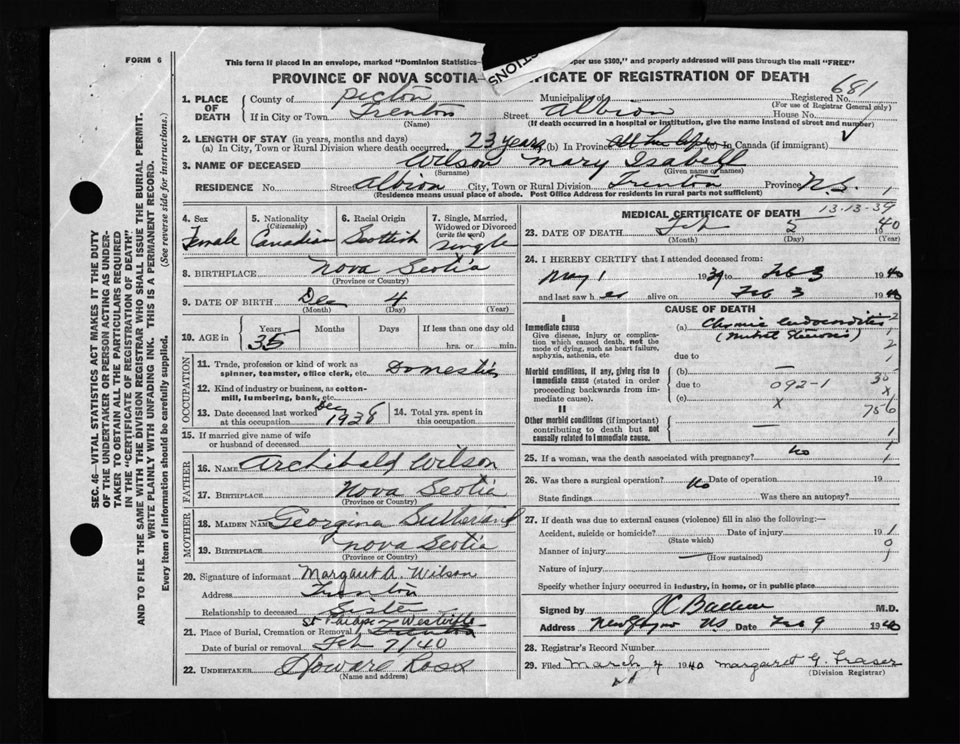 FORM 6
This form if placed in an envelope, marked "Dominion Statistics- per use $300," and properly addressed will pass through the mail "FREE"
PROVINCE OF NOVA SCOTIA- IFICATE OF REGISTRATION OF DEATH
681
1. PLACE OF DEATH County of Pictou Municipality of Registered No.
(For use of Registrar General only)
If in City or Town Trenton Street Albion House No.
(Name) (If death occurred in a hospital or institution, give the name instead of street and number)
2. LENGTH OF STAY (in years, months and days)
(a) In City, Town or Rural Division where death occurred 23 years (b) In Province all her life (c) In Canada (if immigrant)
3. NAME OF DECEASED Wilson Mary Isabell
(Surname) (Given name or names)
RESIDENCE No. Street Albion City, Town or Rural Division Trenton Province N.S. 1
(Residence means usual place of abode. Post Office Address for residents in rural parts not sufficient)
4. Sex Female
5. Nationality (Citizenship) Canadian
6. Racial Origin Scottish
7. Single, Married, Widowed or Divorced (write the word) single
8. BIRTHPLACE Nova Scotia
(Province or Country)
9. DATE OF BIRTH Dec 4
(Month) (Day) (Year)
10. AGE in Years 35 Months Days If less than one day old
hrs. or min.
OCCUPATION
11. Trade, profession or kind of work as spinner, teamster, office clerk, etc. Domestic
12. Kind of industry or business, as cotton-mill, lumbering, bank, etc.
13. Date deceased last worked at this occupation Dec 1938
14. Total yrs. spent in this occupation
15. If married give name of wife or husband of deceased
FATHER
16. NAME Archibald Wilson
17. BIRTHPLACE Nova Scotia
(Province or Country)
MOTHER
18. MAIDEN NAME Georgina Sutherland
19. BIRTHPLACE Nova Scotia
(Province or Country)
20. Signature of informant Margaret A. Wilson
Address Trenton
Relationship to deceased Sister
Westville
21. Place of Burial, Cremation or Removal Trenton
Date of burial or removal Feb 7/40
22. UNDERTAKER Howard Ross
(Name and address)
MEDICAL CERTIFICATE OF DEATH 13-13-39
23. DATE OF DEATH Feb 5 1940
(Month) (Day) (Year)
24. I HEREBY CERTIFY that I attended deceased from:
May 1 1939 to Feb 3 1940
and last saw her alive on Feb 3 1940
CAUSE OF DEATH
I
Immediate cause
Give disease, injury or complication which caused death, not the mode of dying, such as heart failure, asphyxia, asthenia, etc
(a) Chronic endocarditis 2
(Mitral Stenosis) 1
2
due to 1
Morbid conditions, if any, giving rise to immediate cause (stated in order proceeding backwards from immediate cause).
(b) —
due to 092-1 30
x
(c) x 756
II
Other morbid conditions (if important) contributing to death but not causally related to immediate cause.
— 1
25. If a woman, was the death associated with pregnancy? No 1
26. Was there a surgical operation? No Date of operation 19
State findings Was there an autopsy?
27. If death was due to external causes (violence) fill in also the following:-
Accident, suicide or homicide? Date of injury 19 1
(State which) 0
Manner of injury — 1
(How sustained)
Nature of injury
Specify whether injury occurred in industry, in home, or in public place
Signed by M.D.
Address New Glasgow NS Date Feb 9 1940
28. Registrar's Record Number
29. Filed March 4 1940 Margaret G. Fraser
(Division Registrar)
SEC. 46—VITAL STATISTICS ACT MAKES IT THE DUTY
OF THE UNDERTAKER OR PERSON ACTING AS UNDER-
TAKER TO OBTAIN ALL THE PARTICULARS REQUIRED
IN THE "CERTIFICATE OF REGISTRATION OF DEATH"
AND TO FILE THE SAME WITH THE DIVISION REGISTRAR WHO SHALL ISSUE THE BURIAL PERMIT.
WRITE PLAINLY WITH UNFADING INK. THIS IS A PERMANENT RECORD.
Every item of information should be carefully supplied. (See reverse side for instructions.)